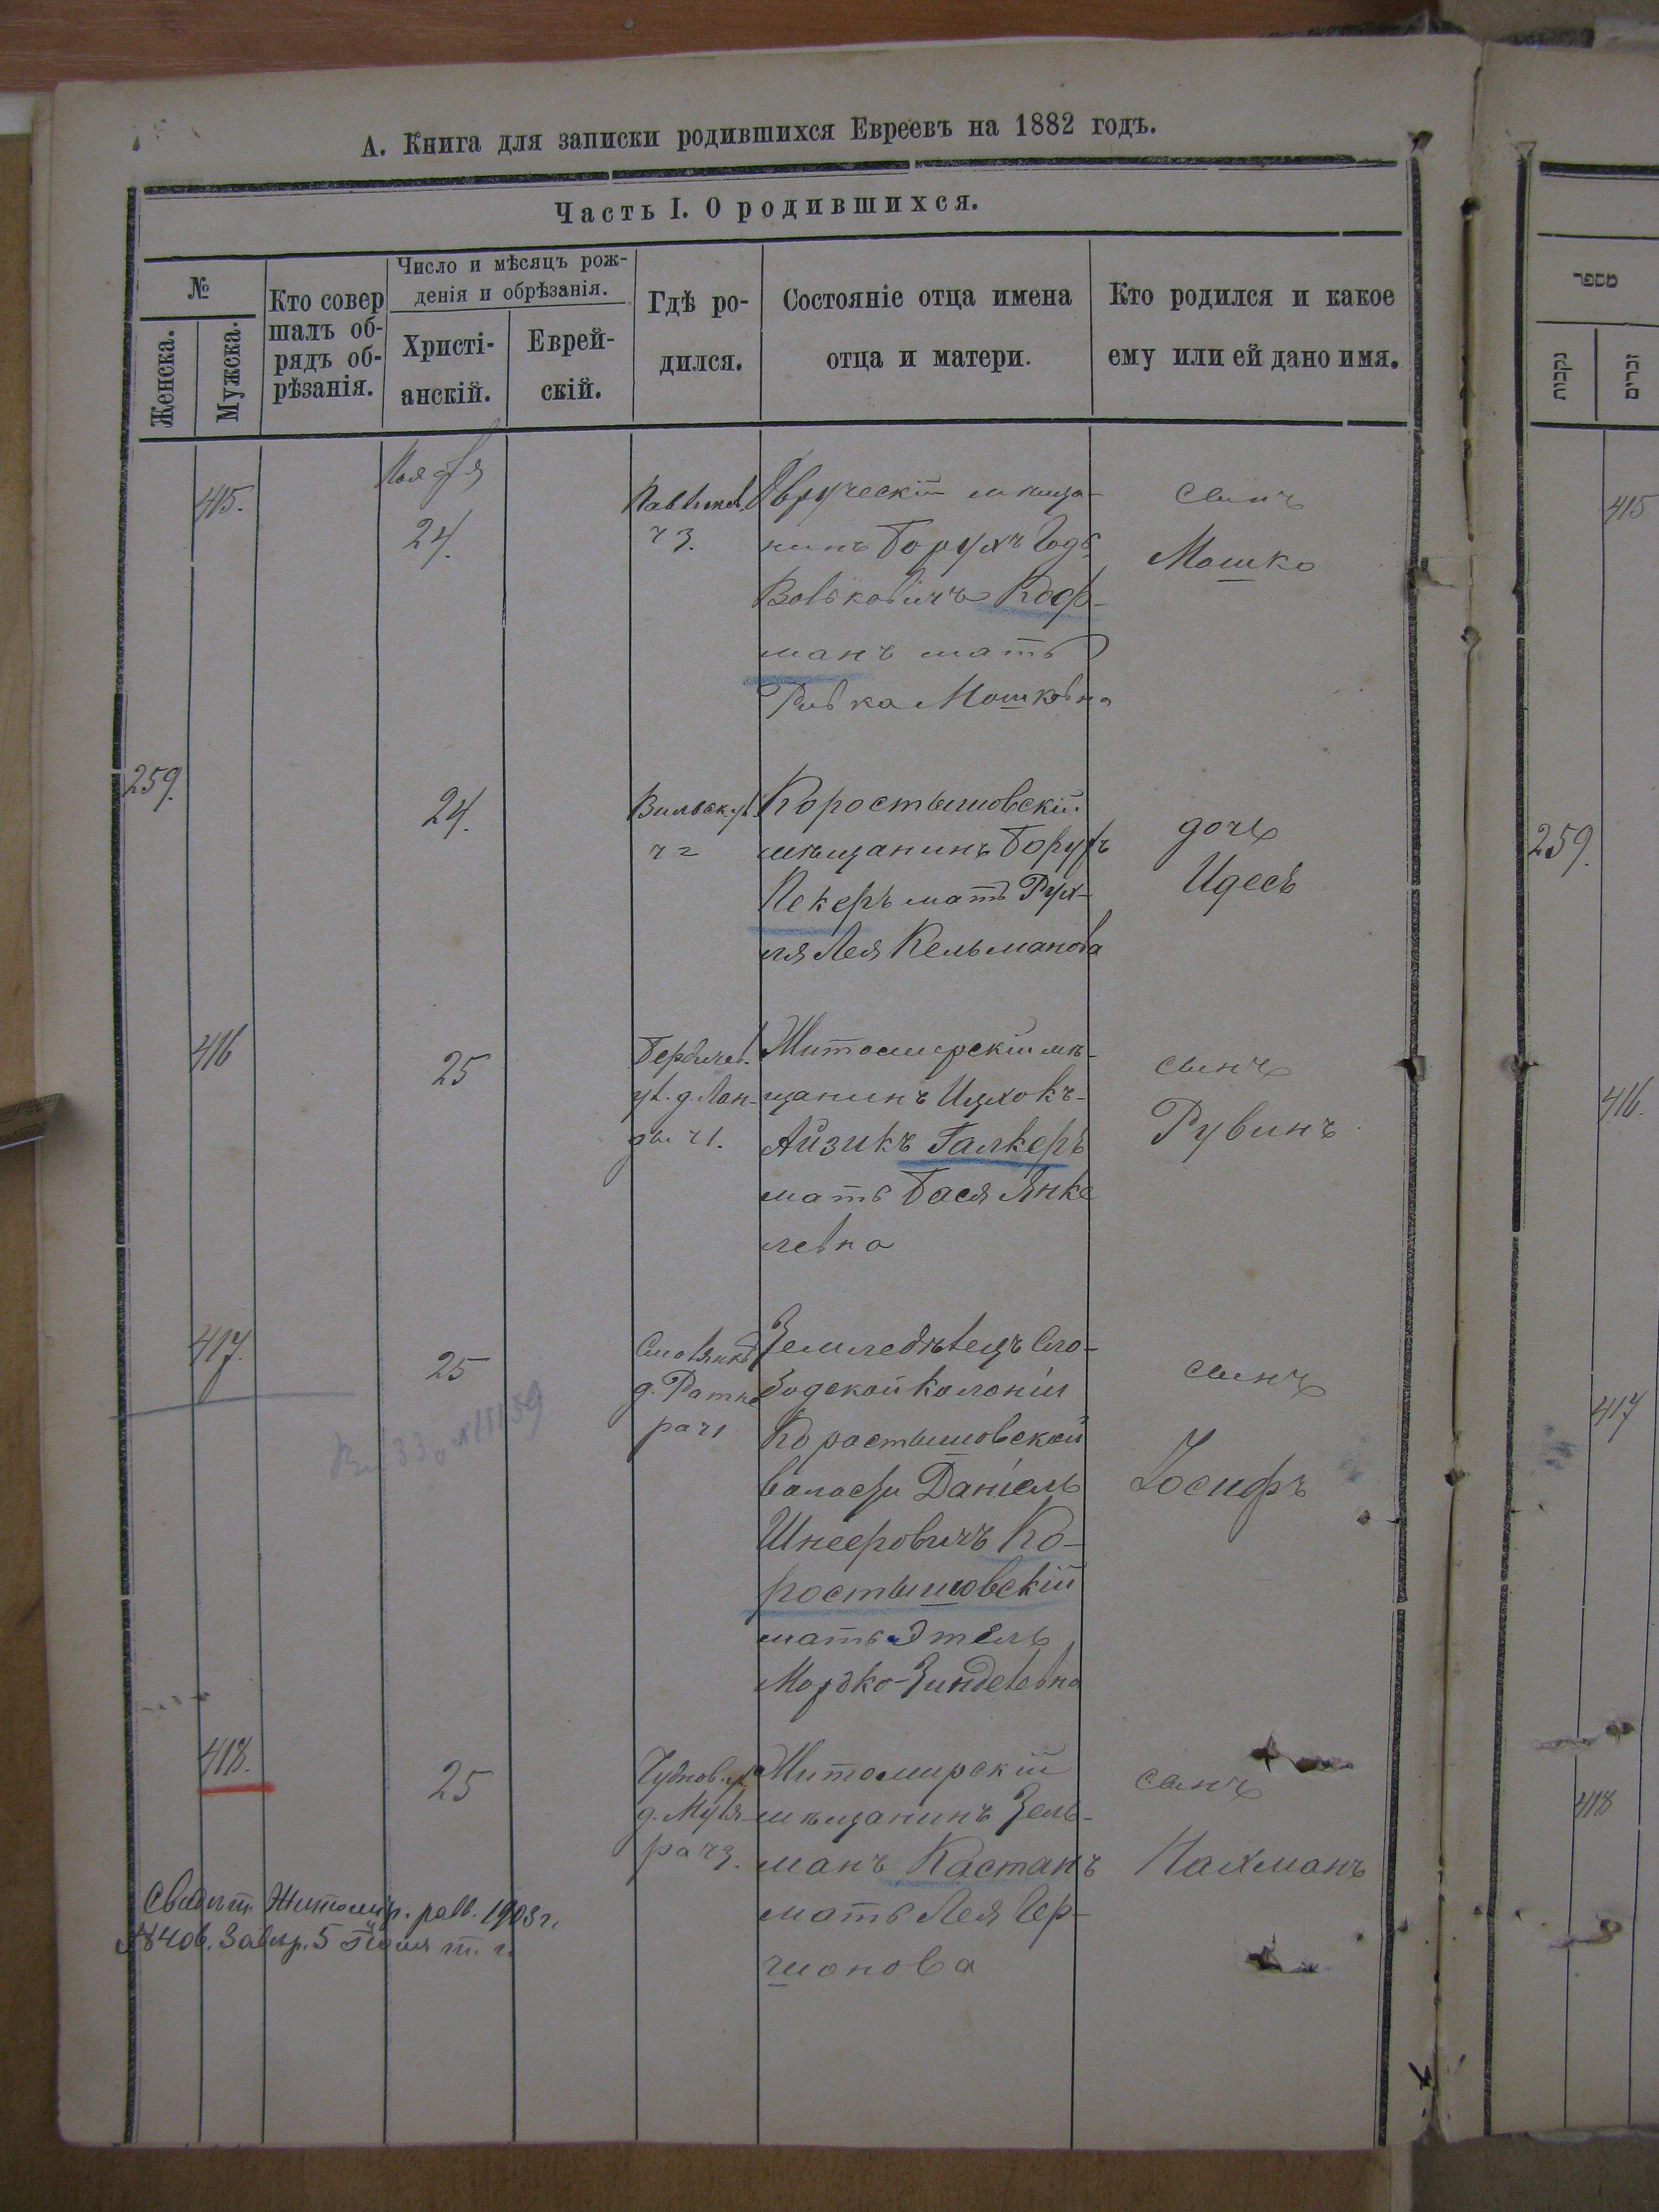 А. Книга для записки родившихся Евреевъ на 1882 годъ.
Часть I. О родившихся.
№
Женска.
Мужска.
Кто совер
шалъ об-
рядъ об-
рѣзанія.
Число и мѣсяцъ рож-
денія и обрѣзанія.
Христі-
анскій.
Еврей-
скій.
Гдѣ ро-
дился.
Состояніе отца имена
отца и матери.
Кто родился и какое
ему или ей дано имя.
מספר
נקבות
זכרים
415.
Ноября
24.
ч 3.
Овруческій мѣща-
нинъ Борухъ Годъ
Вольковичъ Коф-
манъ мать
Ривка Мошковна
сынъ
Мошко
415
259.
24.
Вильск. ул.
ч 2
Коростышовскій
мѣщанинъ Борухъ
Пекеръ мать Рух-
ля Лея Кельманова
дочь
Идесь
259.
416
25
Бердичев.
ул. д. Лан-
ды ч 1.
Житомирскій мѣ-
щанинъ Ицхокъ-
Айзикъ Галкеръ
мать Бася Янке
левна
сынъ
Рувинъ
416.
417.
25
д. Ратне
ра ч 1
Земледѣлецъ Сло-
бодской Колоніи
Коростышовской
волости Даніель
Шнееровичъ Ко-
ростышовскій
мать Этель
Мордко-Зинделевна
сынъ
Іосифъ
417
418.
25
Чуднов. ул.
д. Муля-
ра ч 3.
Житомирскій
мѣщанинъ Зель-
манъ Кастанъ
мать Лея Гер-
шонова
сынъ
Нахманъ
418
Свидѣт. Житомір. равв. 1903 г.
5 Іюля т. г.